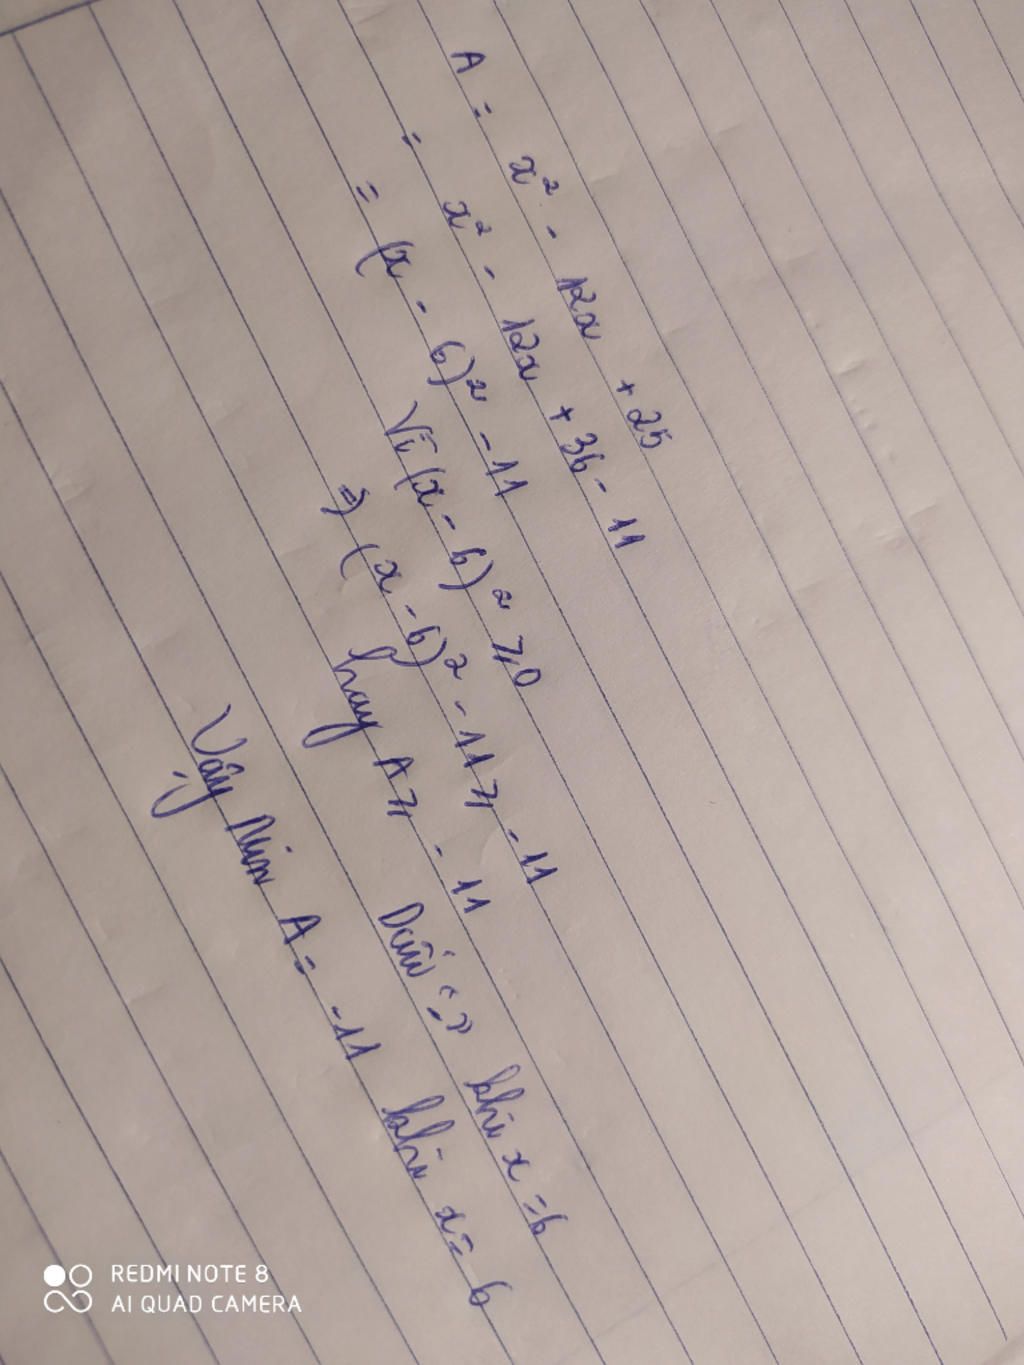 A = x² - 12x + 25
= x² - 12x + 36 - 11
= (x - 6)² - 11
Vì (x - 6)² ≥ 0
=> (x - 6)² - 11 ≥ -11
hay A ≥ -11
Dấu "=" khi x = 6
Vậy Min A = -11 khi x = 6
REDMI NOTE 8
AI QUAD CAMERA